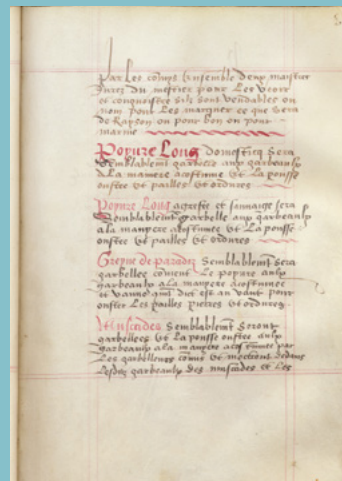 par les comps Ensemble deux maistres
Jurez du mestier pour les veoir
et congnoistre silz sont vendables ou
non pour les marquer ce que sera
de Rayson ou pour bon ou pour
Popure Long domesticq sera
semblablement garbelle aux garbeaulx
a La maniere acostume et La pousse
onstee et pailles et ordures
Popure Long agreste et sauuaige sera
semblablement garbelle aux garbeaulx
a la manyere acostumee et La pousse
onstee et pailles et ordures
Greyne de paradez semblablement sera
garbelles coment Le popure aulx
garbeaulx a la manyere acostumee
et vanne dict est au vant pour
onster Les pailles pierres et ordures
Muscades semblablement seront
garbellees et La pousse onstee aulx
garbeaulx a la manyere acostumee par
Les garbelleurs et mectront dedans
Lesdictz garbeaulx des muscades et les